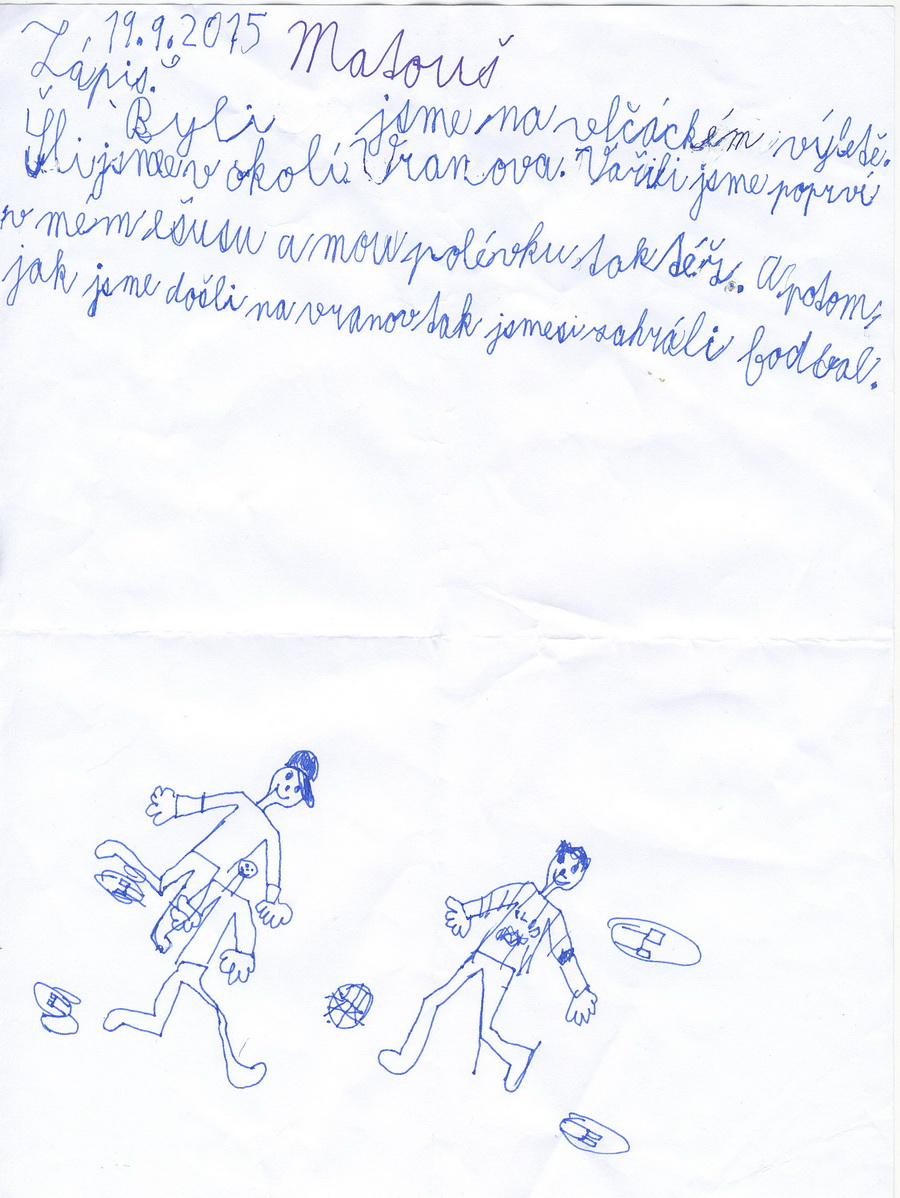 19.9.2015 Matouš
Zápis:
Byli jsme na vlčáckém výletě.
Šli jsme v okolí Vranova. Vařili jsme poprví
v mém ešusu a mou polévku tak též. A potom,
jak jsme došli na vranov tak jsmesi zahráli fodbal.